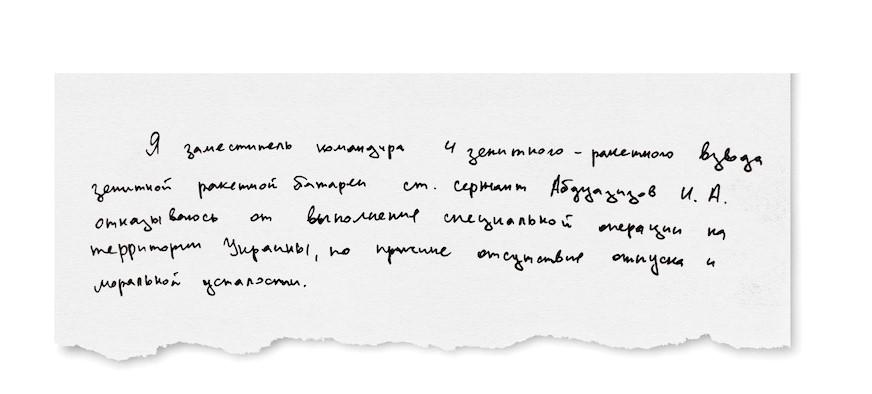 Я заместитель командира 4 зенитного-ракетного взвода
зенитной ракетной батареи ст. сержант Абдулазизов И. А.
отказываюсь от выполнения специальной операции на
территории Украины, по причине отсутствия отпуска и
моральной усталости.